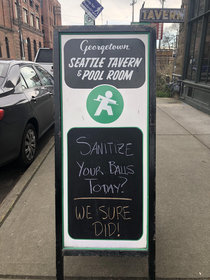 TAVERN
Georgetown
SEATTLE TAVERN
& POOL ROOM
SANITIZE
YOUR BALLS
TODAY?
WE SURE
DID!